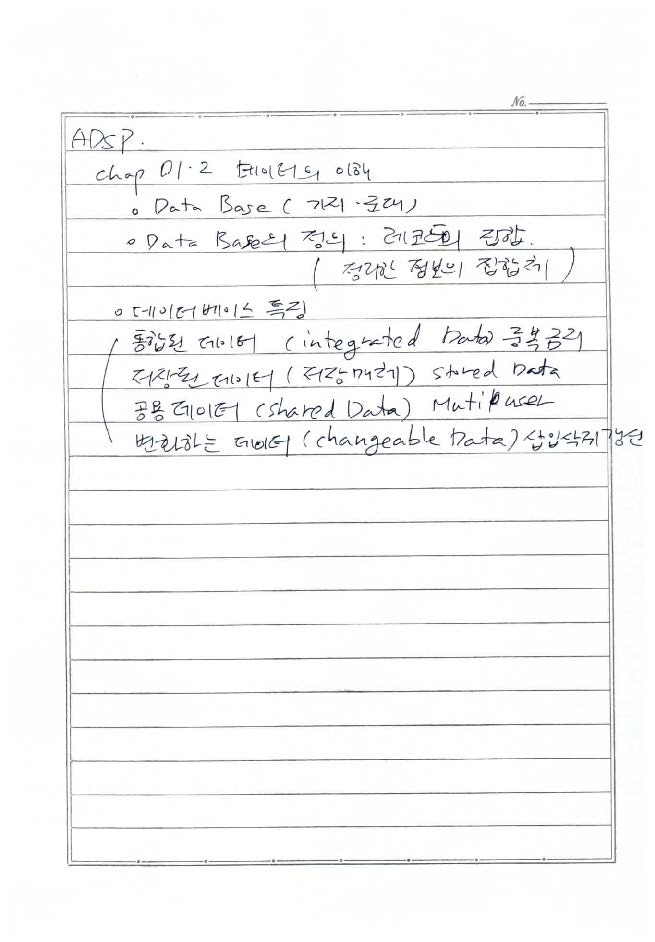 No.
ADSP.
chap 01.2 데이터의 이해
o Data Base ( 기지·
o Data Base의 정의 : 레코드의 집합.
( 정리한 정보의 집합체 )
o 데이터베이스 특징
통합된 데이터 (integrated Data) 중복금지
저장된 데이터 (저장매체) stored Data
공용 데이터 (shared Data) user
변화하는 데이터 (changeable Data) 삽입삭제갱신